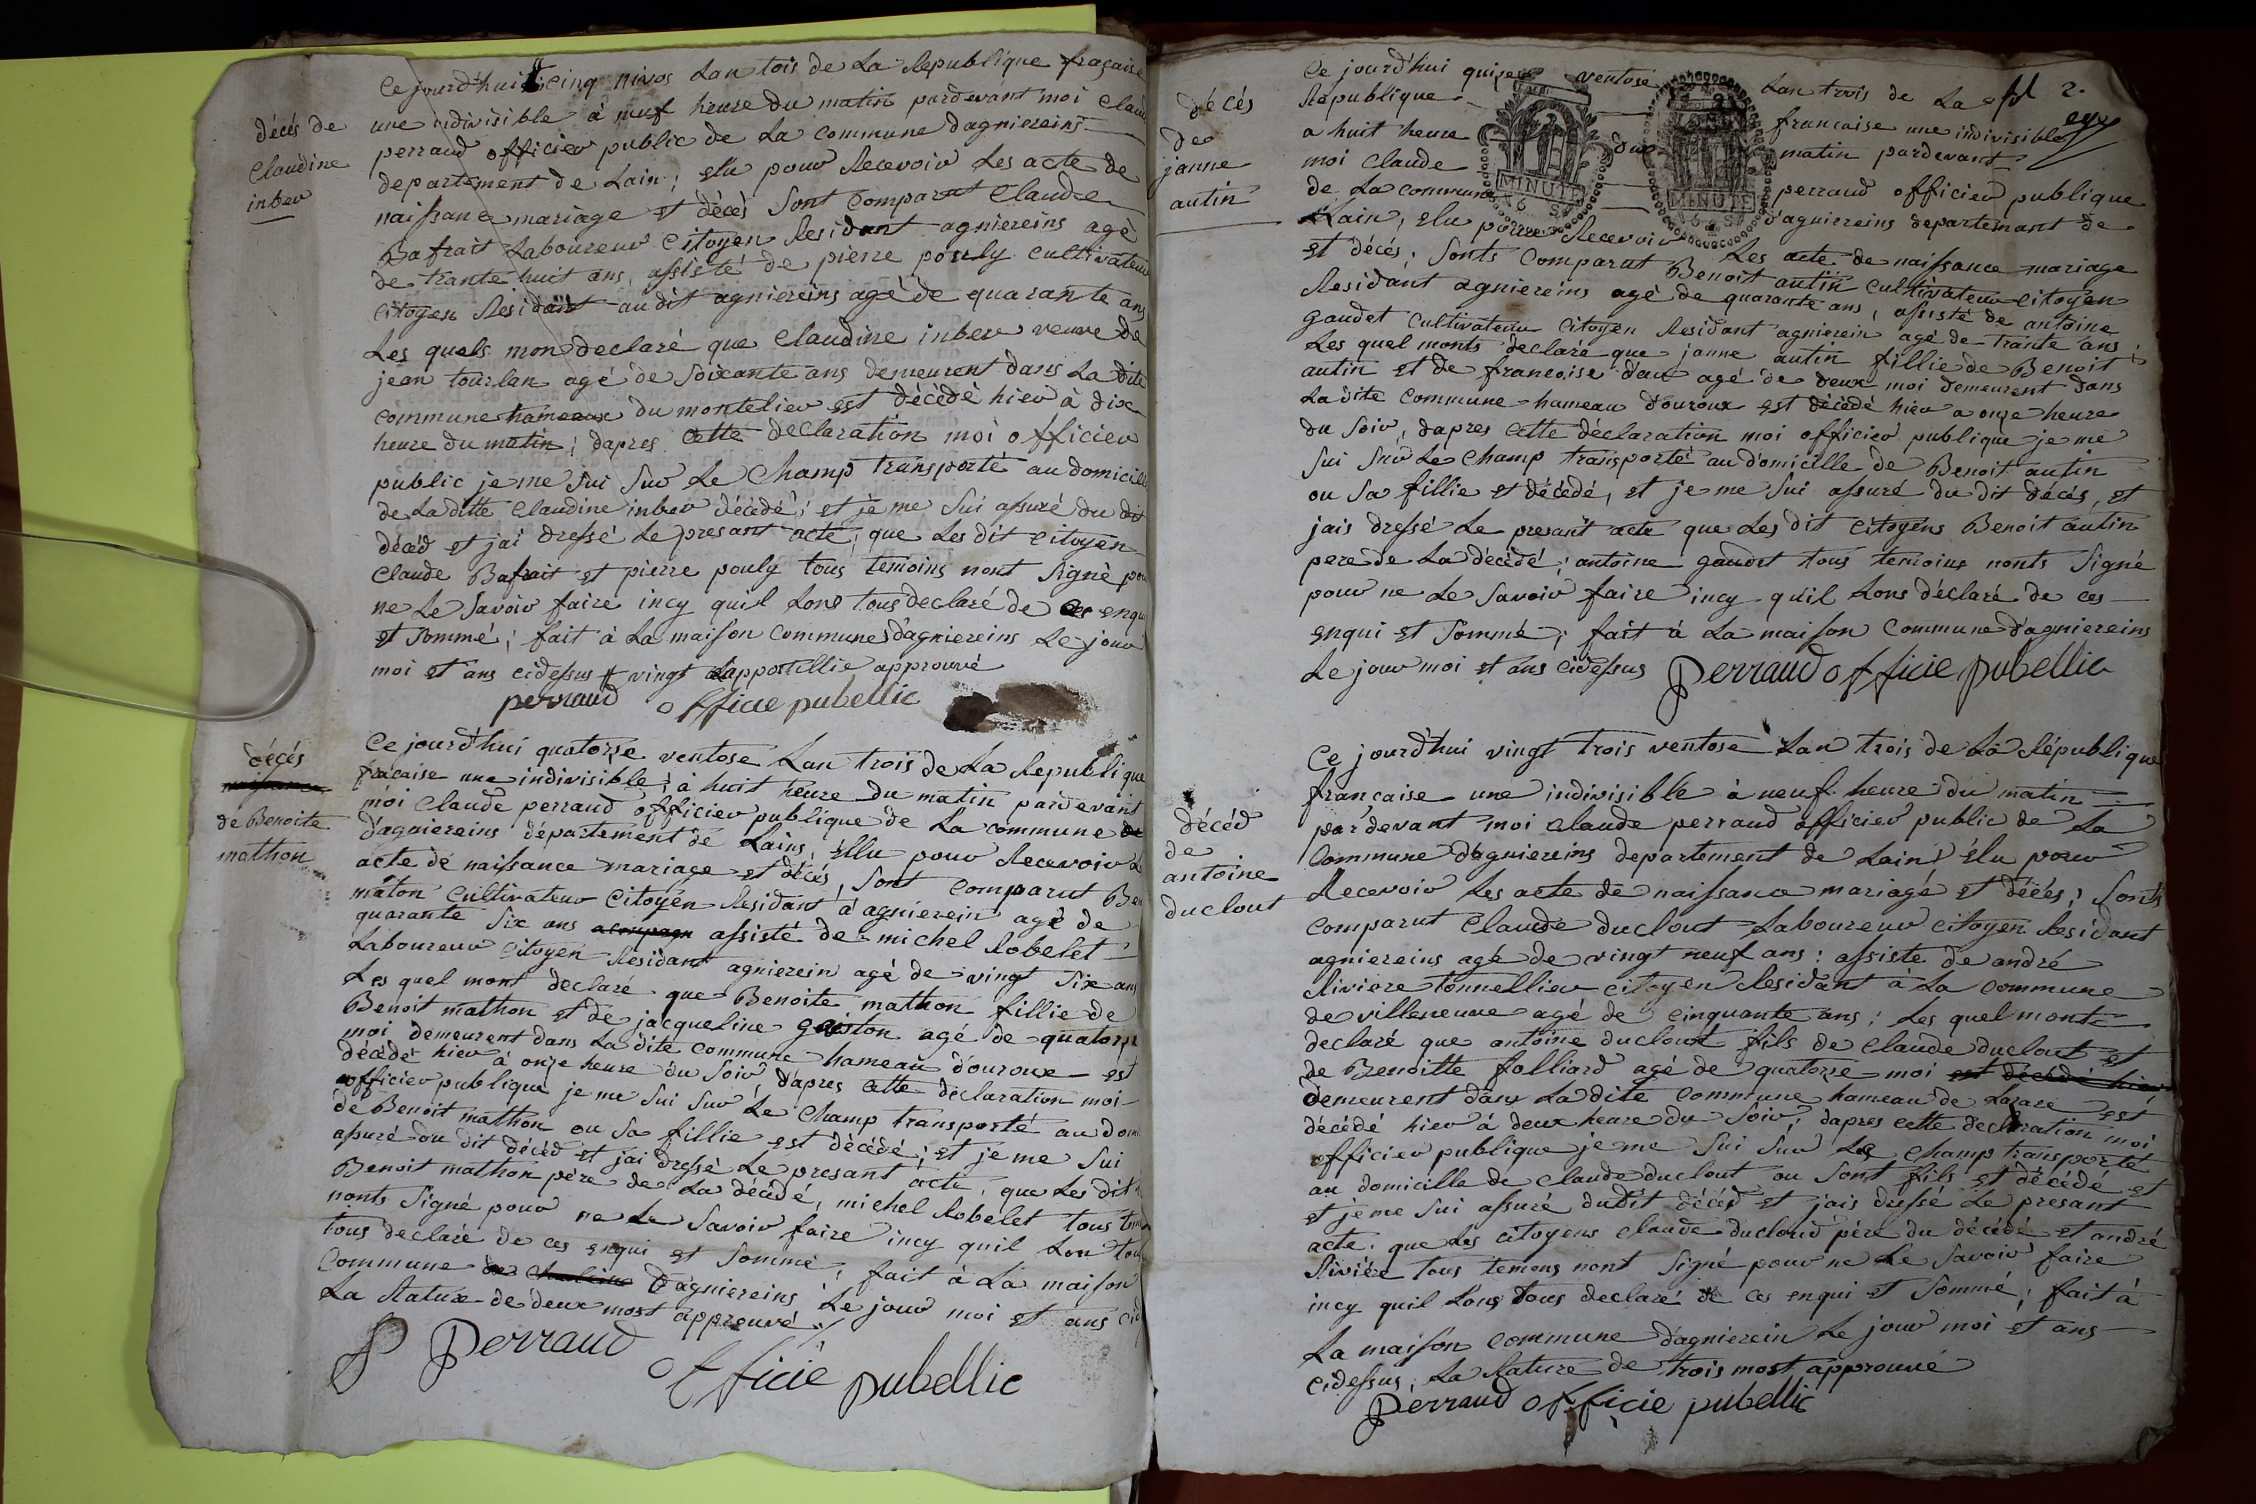 décés de
Claudine
inber
Ce jourd'hui cinq nivos Lan tois de La Republique fraçaise
une indivisible à neuf heure du matin pardevant moi Claude
perraud officier public de La commune dagniereins
departement de Lain; elu pour Recevoir Les acte de
naissance mariage et décés Sont Comparut Claude
Bafrait Laboureur Citoyen Residant agniereins agé
de trante huit ans, assisté de pierre pouly cultivateur
Citoyen Residant audit agniereins agé de quarante ans
Les quels mon declaré que Claudine inber veuve de
jean tourlan agé de Soixante ans demeurent dans La dite
commune hameaux du montelier est décédé hier à dix
heure du matin; dapres cette declaration moi officier
public je me Sui Sur Le Champ transporté au domicile
de La ditte Claudine inber décédé; et je me Sui assuré du dit
décéd et jai dressé Le presant acte; que Les dit Citoyen
Claude Bafrait et pierre pouly tous temoins nont Signé pour
ne Le Savoir faire incy quil Lons tous declaré de ces enqui
et Sommé; fait à La maison Commune d'agniereins Le jour
moi et ans cidessus vingt Lappostillie approuvé
perraud officie pubellic
décés
de Benoite
mathon
Ce jourd'hui quatorze ventose Lan trois de La Republique
fracaise une indivisible; à huit heure du matin pardevant
moi Claude perraud officier publique de La commune
d'agniereins département de Lains, ellu pour Recevoir L
acte de naissance mariage et décés, Sont Comparut Ben
maton Cultivateur Citoyen Residant à agnierein agé de
quarante Six ans acompagn assisté de michel Robelet
Laboureur Citoyen Residant agnierein agé de vingt Six ans
Les quel mont declaré que Benoite mathon fillie de
Benoit mathon et de jacqueline goiston agé de quatorze
moi demeurent dans La dite commune hameau d'ouroux est
décédé hier à onze heure du Soir, dapres cette déclaration moi
officier publique je me Sui Sur Le Champ transporté au dom
de Benoit mathon ou Sa fillie est décédé; et je me Sui
assuré du dit décéd et jai dressé Le presant acte, que Les dit
Benoit mathon père de La décédé, michel Robelet tous tem
nonts Signé pour ne Le Savoir faire incy quil Lon tous
tous declaré de ces enqui et Sommé; fait à La maison
Commune de D'agniereins, Le jour moi et ans cid
La Rature de deux most approuvé
P Perraud officie pubellic
fol 2.
décés
de
janne
autin
Ce jourd'hui quinze ventose Lan trois de La
Republique francaise une indivisible
a huit heure du matin pardevant
moi Claude perraud officier publique
de La commune d'agniereins departemant de
Lain, elu pour Recevoir Les acte de naissance mariage
et décés; Sonts Comparut Benoit autin cultivateur citoyen
Residant agniereins agé de quarante ans, assisté de antoine
gaudet cultivateur Citoyen Residant agnierein agé de trante ans;
Les quel monts declaré que janne autin fillie de Benoit
autin et de francoise dau agé de deux moi demeurent dans
La dite commune hameau d'ouroux est décédé hier a onze heure
du Soir, dapres cette déclaration moi officier publique je me
Sui Sur Le Champ transporté au domicille de Benoit autin
ou Sa fillie et décédé, et je me Sui assuré du dit décés, et
jais dressé Le presant acte que Les dit Citoyens Benoit autin
pere de La décédé; antoine gaudet tous temoins nonts Signé
pour ne Le Savoir faire incy quil Lons déclaré de ces
enqui et Sommé; fait à La maison Commune d'agniereins
Le jour moi et ans cidessus Perraud officie pubellic
MINUTE
MINUTE
décéd
de
antoine
duclout
Ce jourd'hui vingt trois ventose Lan trois de La République
francaise une indivisible à neuf heure du matin
pardevant moi Claude perraud officier public de La
Commune d'agniereins departement de Lain, élu pour
Recevoir Les acte de naissance mariage et décés; Sonts
Comparut Claude duclout Laboureur Citoyen Residant
agniereins agé de vingt neuf ans: assisté de andré
Riviere tonnellier citoyen Residant à La commune
de villeneuve agé de Cinquante ans; Les quel mont
declaré que antoine duclout fils de Claude duclout et
de Benoitte folliard agé de quatorze moi est décédé hier
demeurent dans La dite commune hameau de Lazare est
décédé hier à deux heure du Soir; dapres cette declaration moi
officier publique je me Sui Sur Le Champ transporté
au domicille de Claude duclout ou Sont fils et décédé et
et je me Sui assuré dudit décéd et jais dressé Le presant
acte. que Les citoyens Claude duclout père du décédé et andré
Rivière tous temons nont Signé pour ne Le Savoir faire
incy quil Lons tous declaré de ces enqui et Sommé; fait à
La maison commune d'agnierein Le jour moi et ans
cidessus, La Rature de trois most approuvé
Perraud officie pubellic